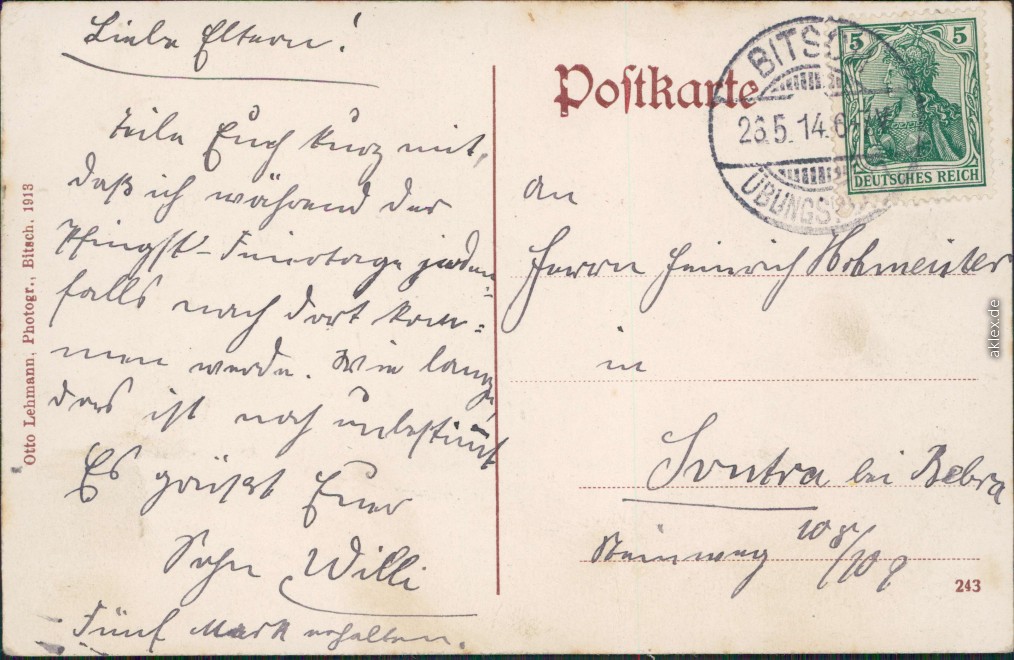 Liebe Eltern!
Teile Euch kurz mit,
daß ich während der
Pfingst-Feiertage jeden-
falls nach dort kom-
men werde. Wie lange,
das ist noch unbestimmt
Es grüßt Euer
Sohn Willi
Fünf Mark erhalten.
Otto Lehmann, Photogr., Bitsch. 1913
Postkarte
BITSCH
26.5.14.6
ÜBUNGSPL
5 5
DEUTSCHES REICH
An
Herrn Heinrich Hobmeister
in
Sontra bei Bebra
Steinweg
243
aklex.de